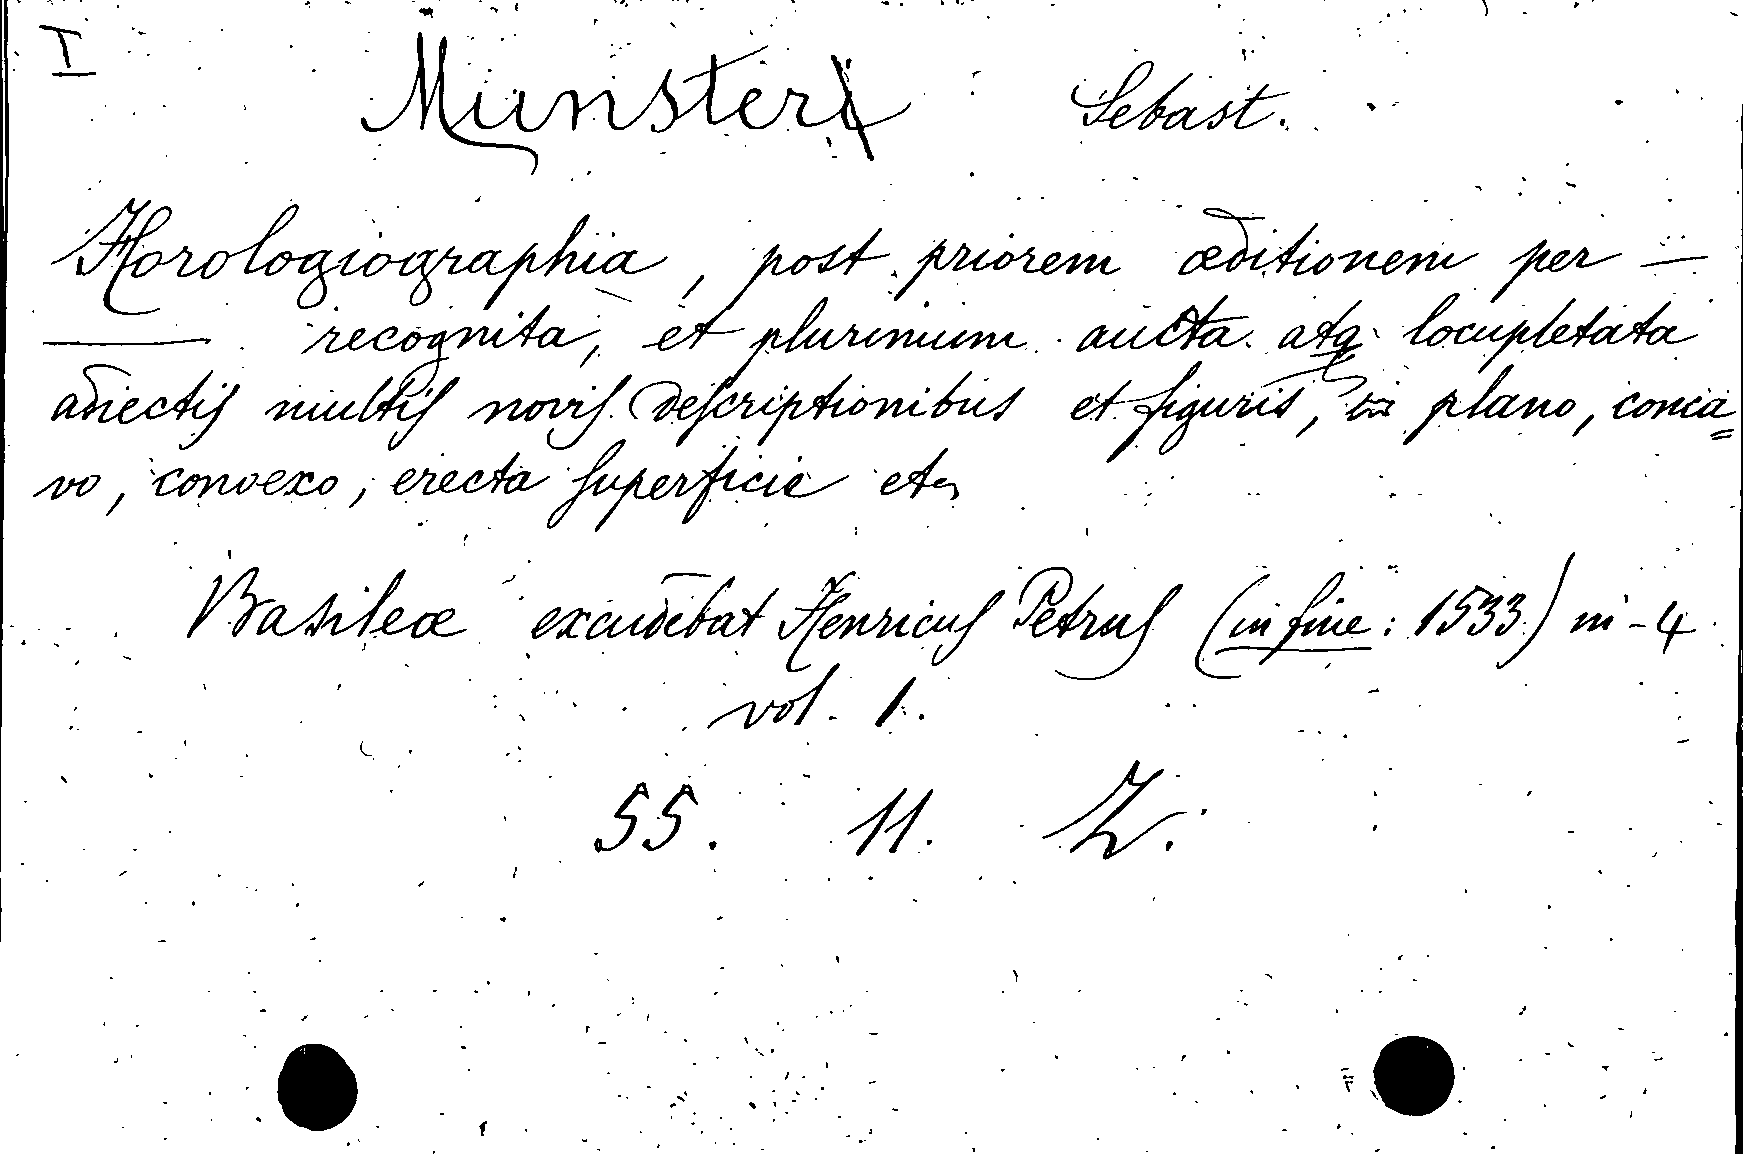 I
Munster Sebast.
Horologiographia, post priorem æditionem per —
— recognita, et plurimum aucta atq locupletata
adiectis multis novis descriptionibus et figuris, in plano, conca=
vo, convexo, erecta superficie etc
Basileæ excudebat Henricus Petrus (in fine: 1533) in-4
vol. 1.
55. 11. Z.